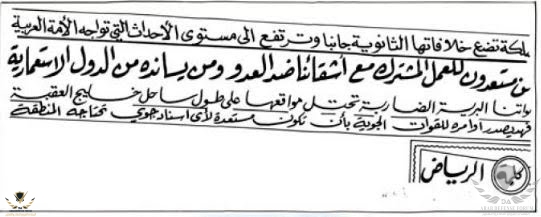 ملكة تضع خلافاتها الثانوية جانبا وترتفع الى مستوى الأحداث التي تواجه الأمة العربية
من مستعدون للعمل المشترك مع أشقائنا ضد العدو ومن يسانده من الدول الاستعمارية
واتنا البرية الضاربة تحتل مواقعها على طول ساحل خليج العقبة
فهد يصدر أوامره للقوات الجوية بأن تكون مستعدة لأى اسناد جوي تحتاجه المنطقة
كلمة الرياض